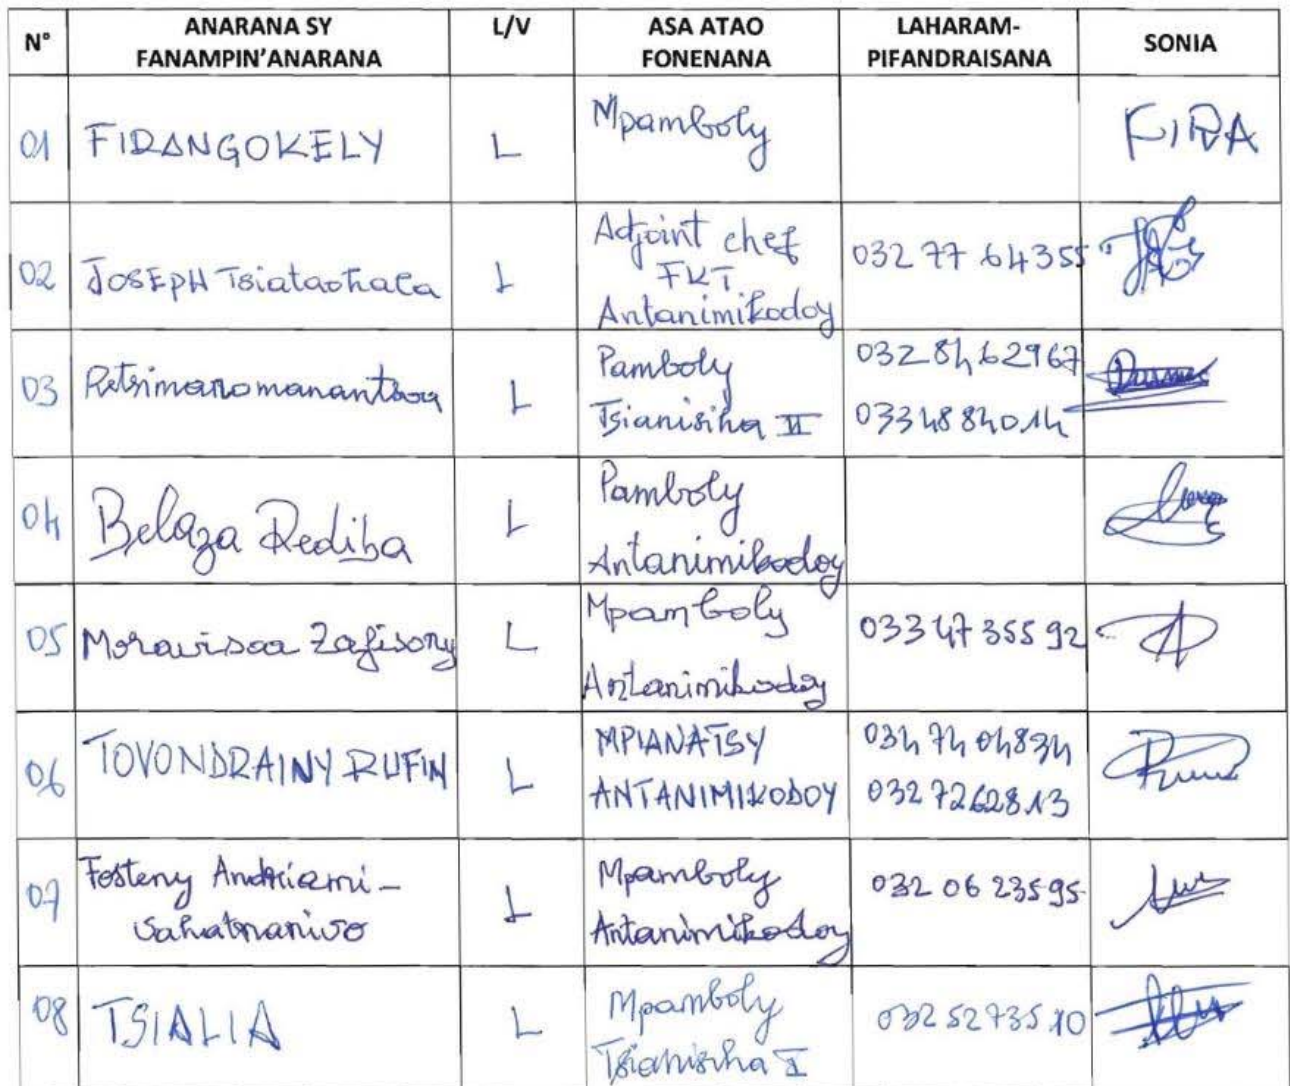 N° ANARANA SY FANAMPIN'ANARANA L/V ASA ATAO FONENANA LAHARAM-PIFANDRAISANA SONIA
01 FIRANGOKELY L Mpamboly FIRA
02 JOSEPH Tsiataohaca L Adjoint chef FKT Antanimikodoy 032 77 64355
03 L Pamboly Tsianisiha II 032 84 62967 033 48 84014
04 Belaza Rediba L Pamboly Antanimikodoy
05 Moravisoa Zafisony L Mpamboly Antanimikodoy 033 47 355 92
06 TOVONDRAINY RUFIN L MPIANATSY ANTANIMIKODOY 034 74 04834 032 72628 13
07 Fosteny L Mpamboly Antanimikodoy 032 06 235 95
08 TSIALIA L Mpamboly Tsianisiha I 032 52 735 10